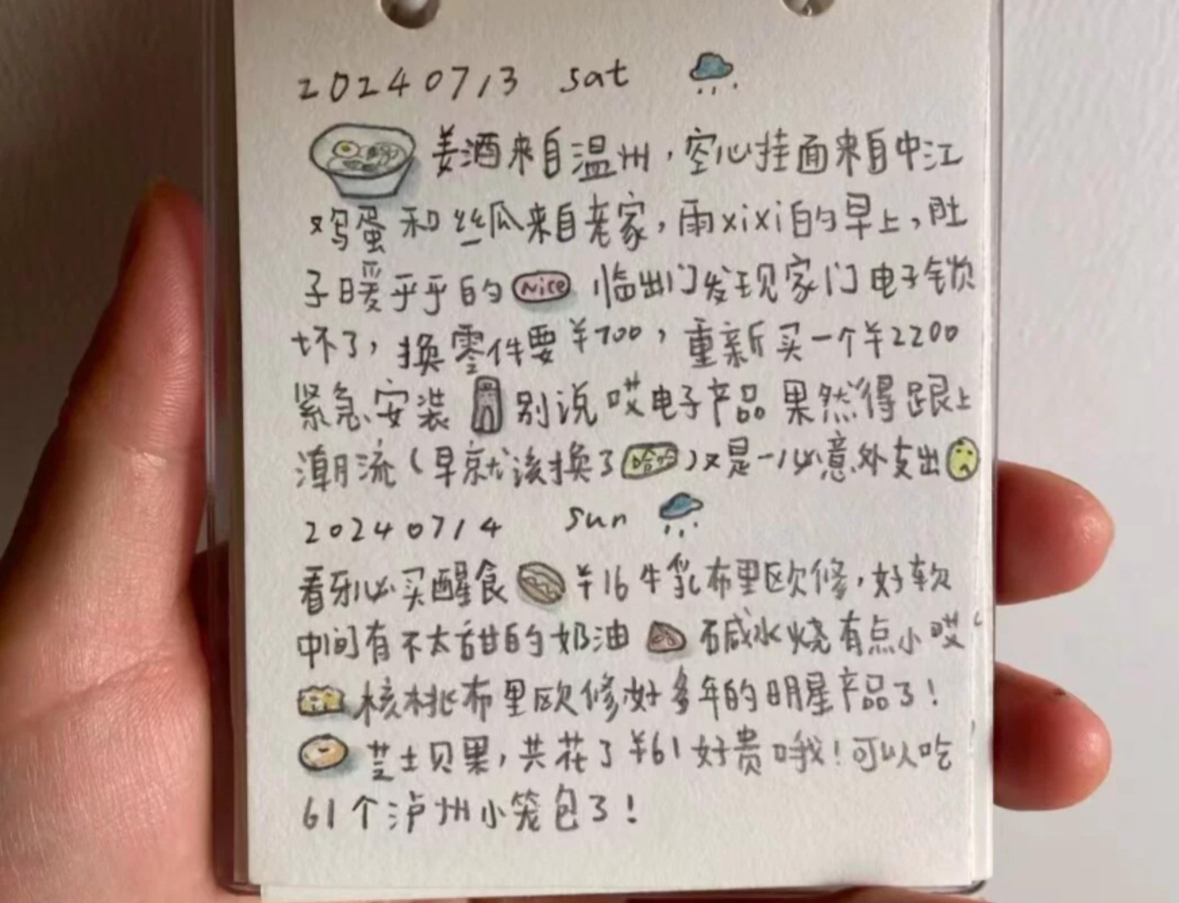 20240713 sat
姜酒来自温州，空心挂面来自中江
鸡蛋和丝瓜来自老家，雨xixi的早上，肚
子暖乎乎的 nice 临出门发现家门电子锁
坏了，换零件要￥700，重新买一个￥2200
紧急安装 别说哎电子产品果然得跟上
潮流（早就该换了哈哈）又是一笔意外支出
20240714 sun
看牙必买醒食 ￥16牛乳布里欧修，好软
中间有不太甜的奶油 碱水烧有点小哎
核桃布里欧修好多年的明星产品了！
芝士贝果，共花了￥61好贵哦！可以吃
61个泸州小笼包了！